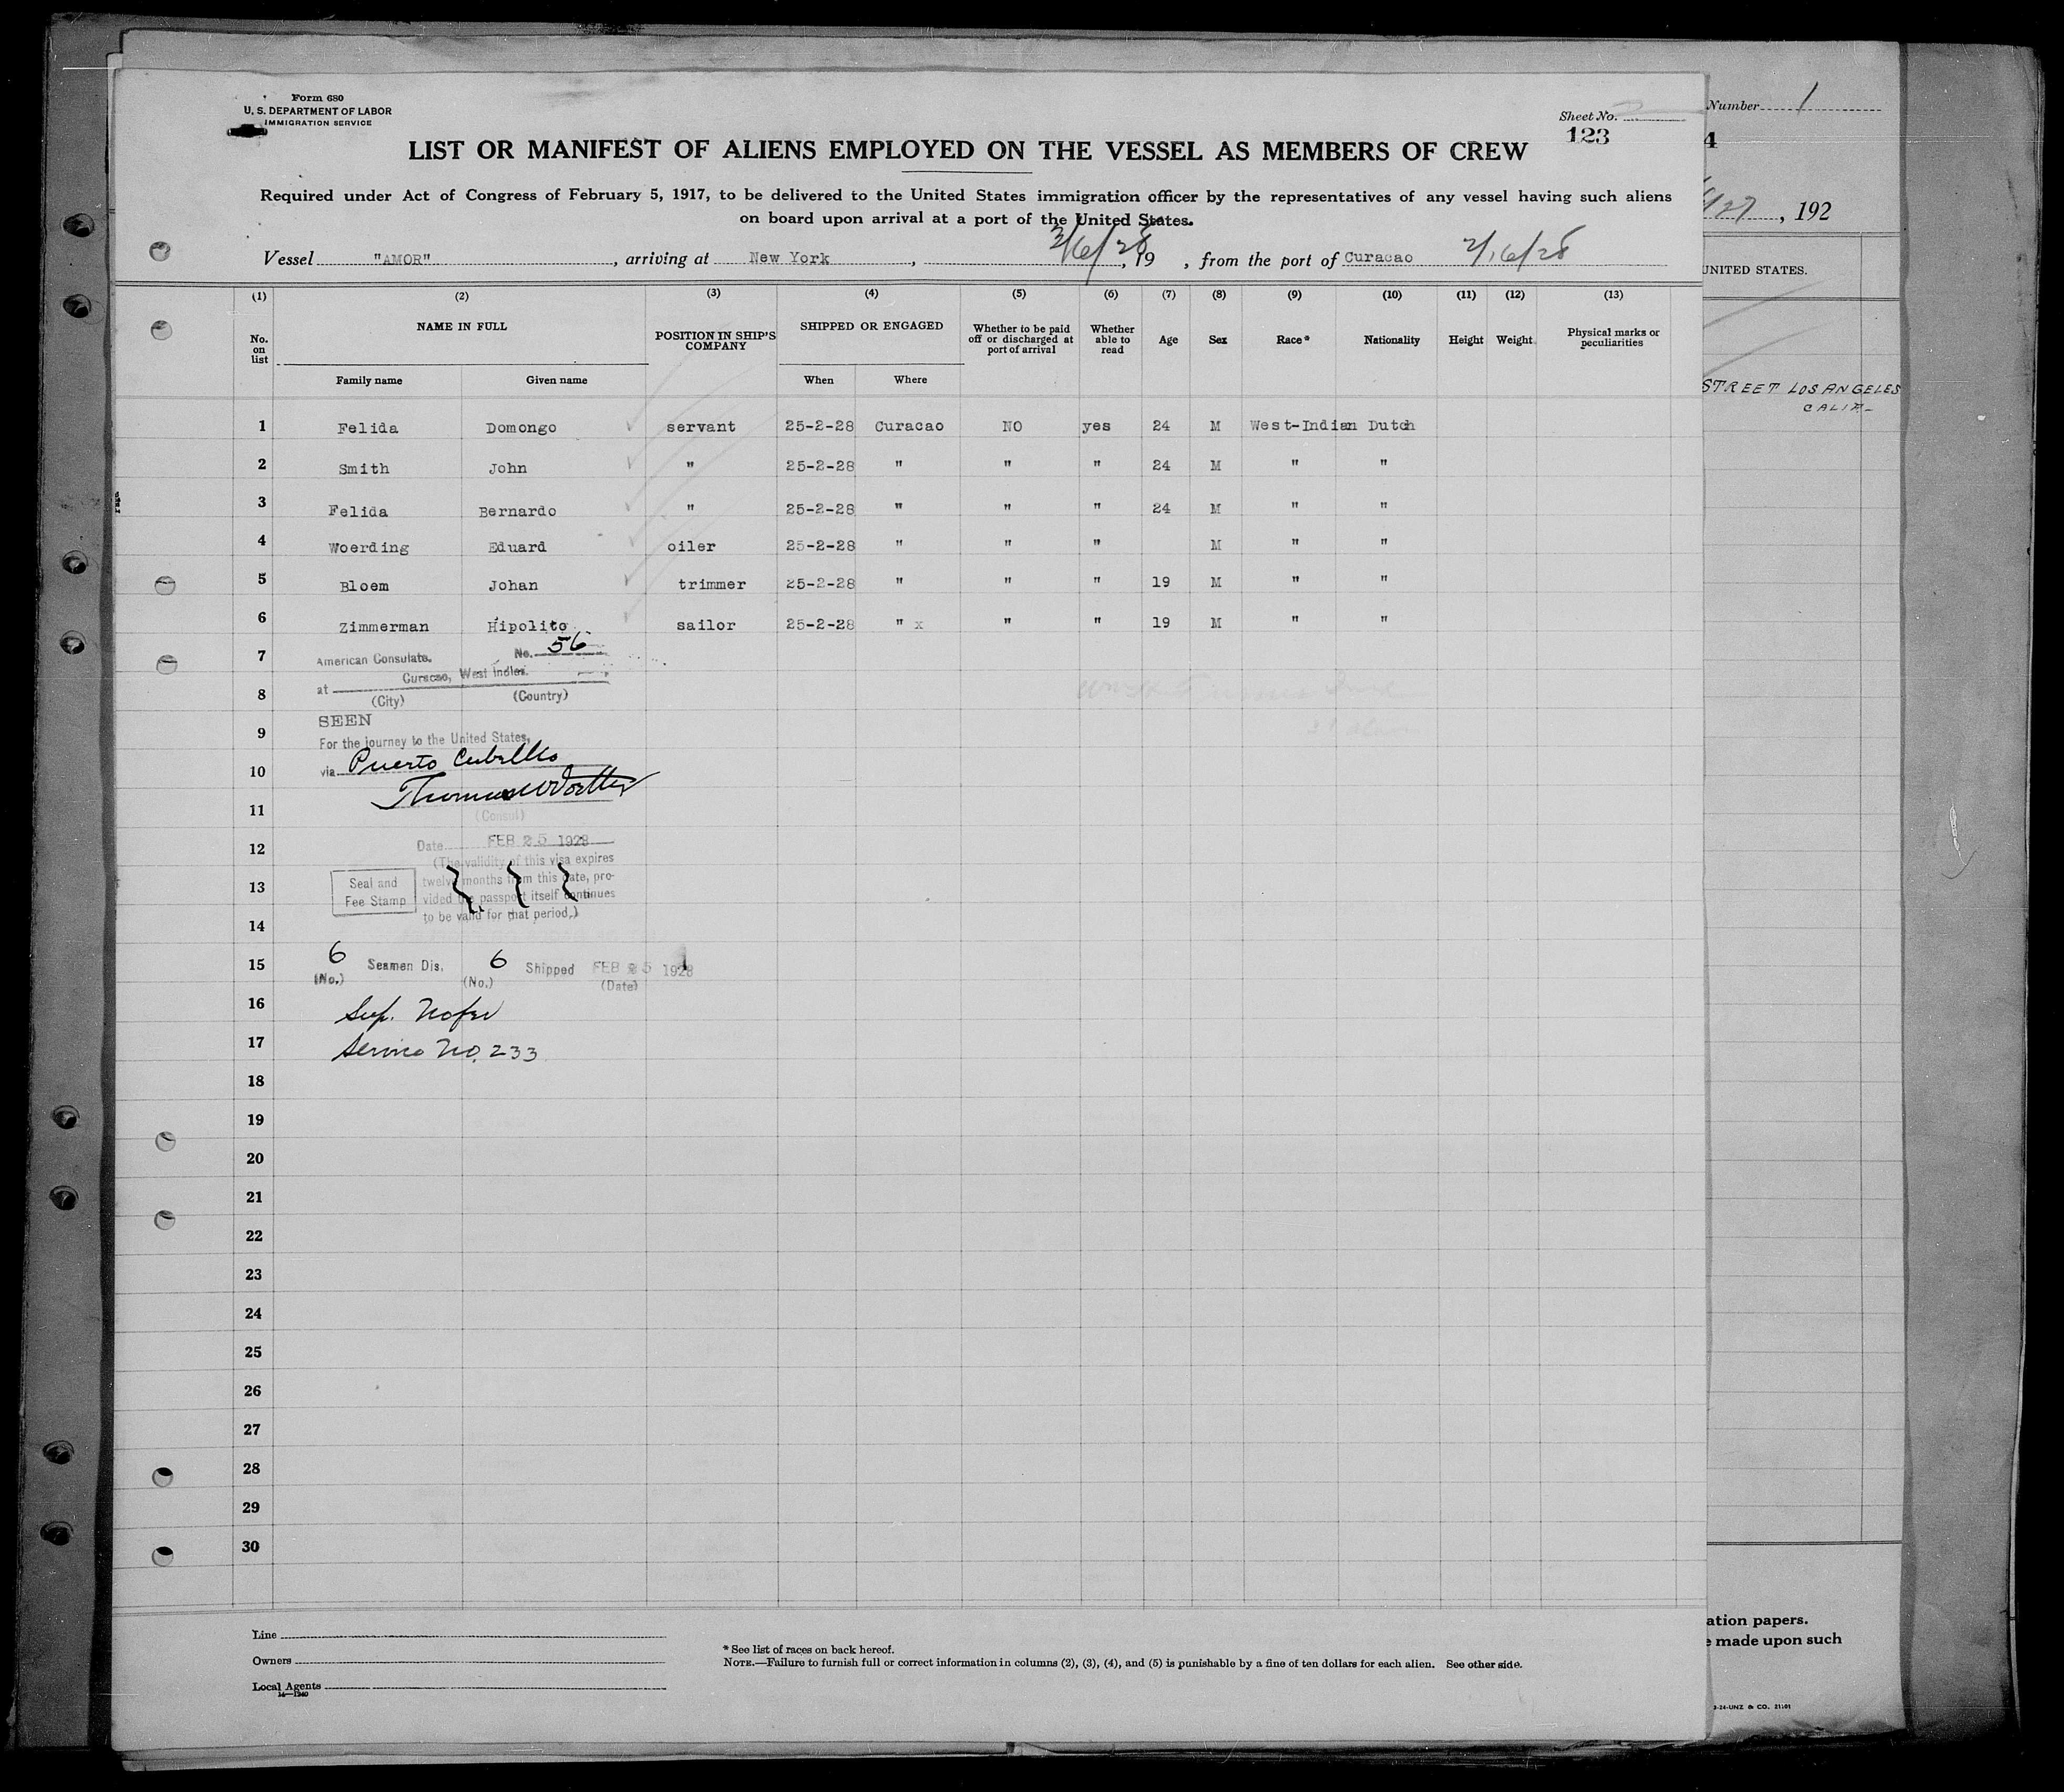 Form 680
U. S. DEPARTMENT OF LABOR
IMMIGRATION SERVICE
Sheet No.
123
LIST OR MANIFEST OF ALIENS EMPLOYED ON THE VESSEL AS MEMBERS OF CREW
Required under Act of Congress of February 5, 1917, to be delivered to the United States immigration officer by the representatives of any vessel having such aliens
on board upon arrival at a port of the United States.
Vessel "AMOR", arriving at New York, 3/6/28, 19 , from the port of Curacao 2/16/28
(1) (2) (3) (4) (5) (6) (7) (8) (9) (10) (11) (12) (13)
No. on list NAME IN FULL POSITION IN SHIP'S COMPANY SHIPPED OR ENGAGED Whether to be paid off or discharged at port of arrival Whether able to read Age Sex Race* Nationality Height Weight Physical marks or peculiarities
Family name Given name When Where
1 Felida Domongo servant 25-2-28 Curacao NO yes 24 M West-Indian Dutch
2 Smith John " 25-2-28 " " " 24 M " "
3 Felida Bernardo " 25-2-28 " " " 24 M " "
4 Woerding Eduard oiler 25-2-28 " " " M " "
5 Bloem Johan trimmer 25-2-28 " " " 19 M " "
6 Zimmerman Hipolito sailor 25-2-28 " x " " 19 M " "
7 American Consulate. No. 56
at Curacao, West Indies.
8 (City) (Country)
SEEN
9 For the journey to the United States,
10 via Puerto Cabello
11 (Consul)
12 Date FEB 25 1928
(The validity of this visa expires
13 Seal and Fee Stamp twelve months from this date, pro-
vided the passport itself continues
14 to be valid for that period.)
15 6 Seamen Dis. 6 Shipped FEB 25 1928
(No.) (No.) (Date)
16
17 Service No. 233
18
19
20
21
22
23
24
25
26
27
28
29
30
Line
Owners
Local Agents
14—1240
* See list of races on back hereof.
NOTE.—Failure to furnish full or correct information in columns (2), (3), (4), and (5) is punishable by a fine of ten dollars for each alien. See other side.
Number 1
4
/27, 192
UNITED STATES.
STREET LOS ANGELES
CALIF-
ation papers.
e made upon such
3-24-UNZ & CO. 21101